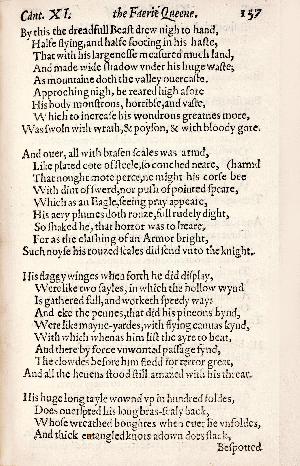 Cant. XI. the Faerie Queene. 157
By this the dreadfull Beast drew nigh to hand,
Halfe flying, and halfe footing in his haste,
That with his largenesse measured much land,
And made wide shadow vnder his huge waste;
As mountaine doth the valley ouercaste.
Approching nigh, he reared high afore
His body monstrous, horrible, and vaste,
Which to increase his wondrous greatnes more,
Was swoln with wrath, & poyson, & with bloody gore.
And ouer, all with brasen scales was armd,
Like plated cote of steele, so couched neare, (harmd
That nought mote perce, ne might his corse bee
With dint of swerd, nor push of pointed speare,
Which as an Eagle, seeing pray appeare,
His aery plumes doth rouze, full rudely dight,
So shaked he, that horror was to heare,
For as the clashing of an Armor bright,
Such noyse his rouzed scales did send vnto the knight.
His flaggy winges when forth he did display,
Were like two sayles, in which the hollow wynd
Is gathered full, and worketh speedy way:
And eke the pennes, that did his pineons bynd,
Were like mayne-yardes, with flying canuas lynd,
With which whenas him list the ayre to beat,
And there by force vnwonted passage fynd,
The clowdes before him fledd for terror great,
And all the heuens stood still amazed with his threat.
His huge long tayle wownd vp in hundred foldes,
Does ouerspred his long bras-scaly back,
Whose wreathed boughtes when euer he vnfoldes,
And thick entangled knots adown does slack,
Bespotted